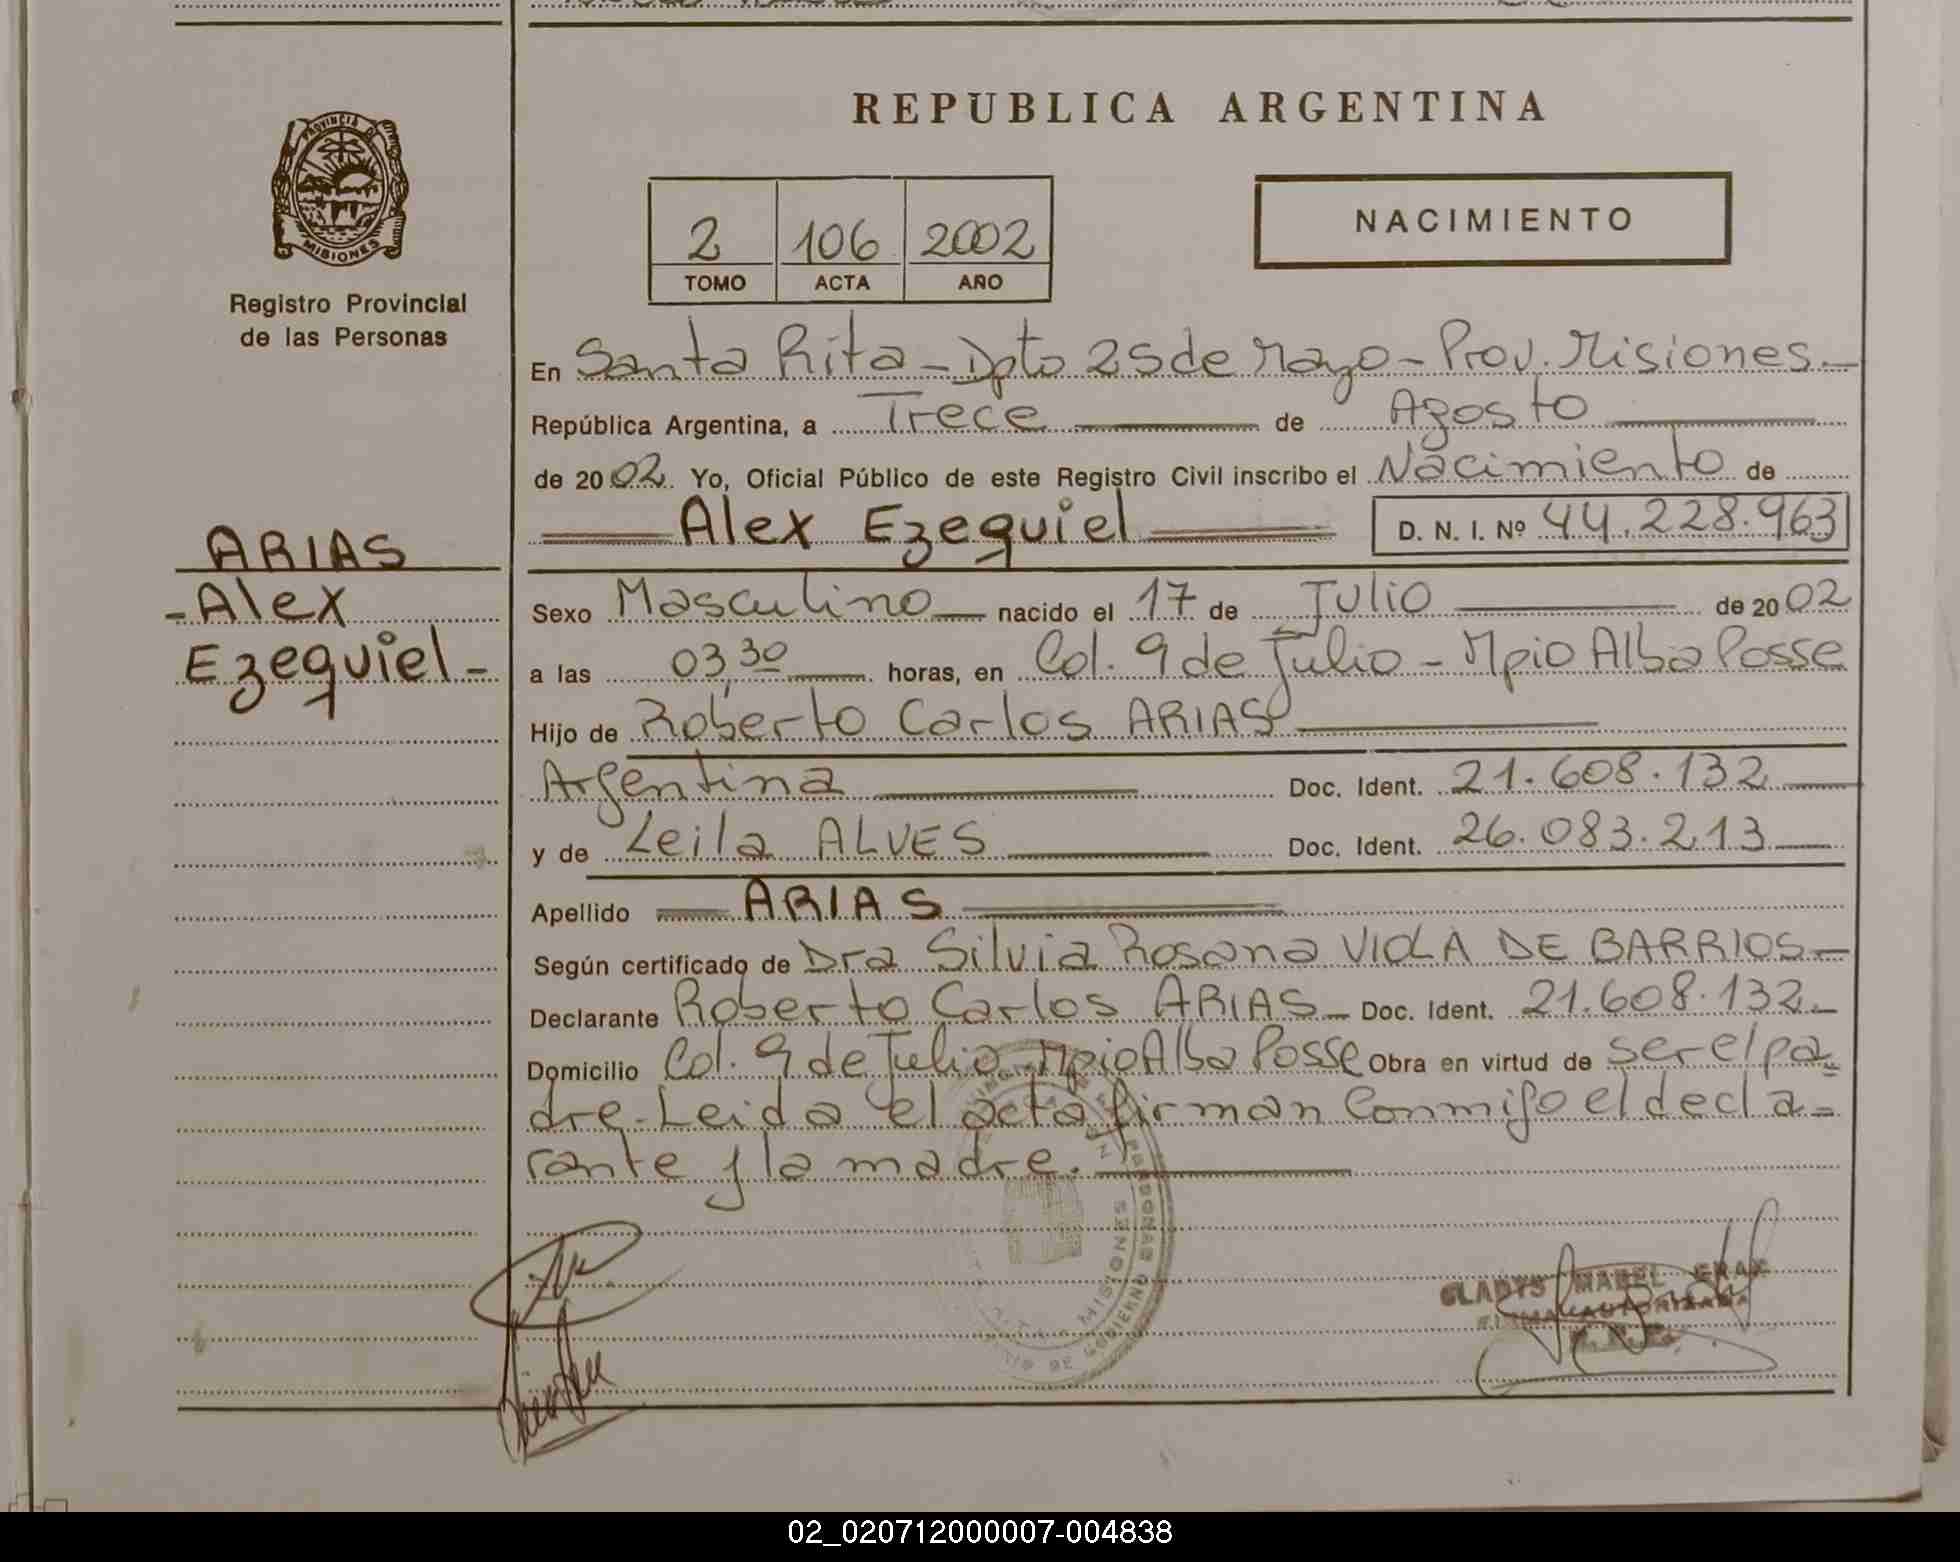 REPUBLICA ARGENTINA
PROVINCIA DE
MISIONES
Registro Provincial
de las Personas
2 106 2002
TOMO ACTA AÑO
NACIMIENTO
En Santa Rita - Dpto 25 de Mayo - Prov. Misiones.-
República Argentina, a Trece de Agosto
de 2002. Yo, Oficial Público de este Registro Civil inscribo el Nacimiento de
Alex Ezequiel D. N. I. Nº 44.228.963
ARIAS
- Alex
Ezequiel -
Sexo Masculino nacido el 17 de Julio de 2002
a las 03,30 horas, en Col. 9 de Julio - Mpio Alba Posse
Hijo de Roberto Carlos ARIAS
Argentina Doc. Ident. 21.608.132
y de Leila ALVES Doc. Ident. 26.083.213
Apellido ARIAS
Según certificado de Dra Silvia Rosana VIOLA DE BARRIOS-
Declarante Roberto Carlos ARIAS- Doc. Ident. 21.608.132-
Domicilio Col. 9 de Julio - Mpio Alba Posse Obra en virtud de ser el pa=
dre- Leida el acta firman Conmigo el decla=
rante y la madre.
GLADYS MABEL
02_020712000007-004838